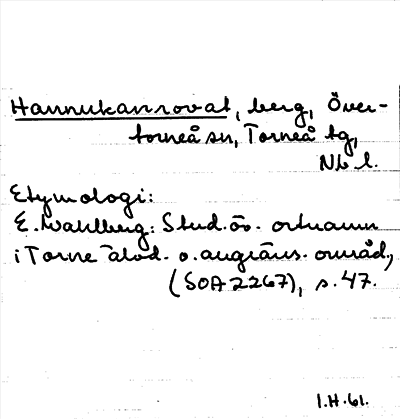 Hannukanrovat, berg, Över-
torneå sn, Torneå tg,
Nb l.
Etymologi:
E. Wahlberg: Stud. öv. ortnamn
i Torne älvd. o. angräns. områd.,
(SOA 2267), s. 47.
I.H. 61.